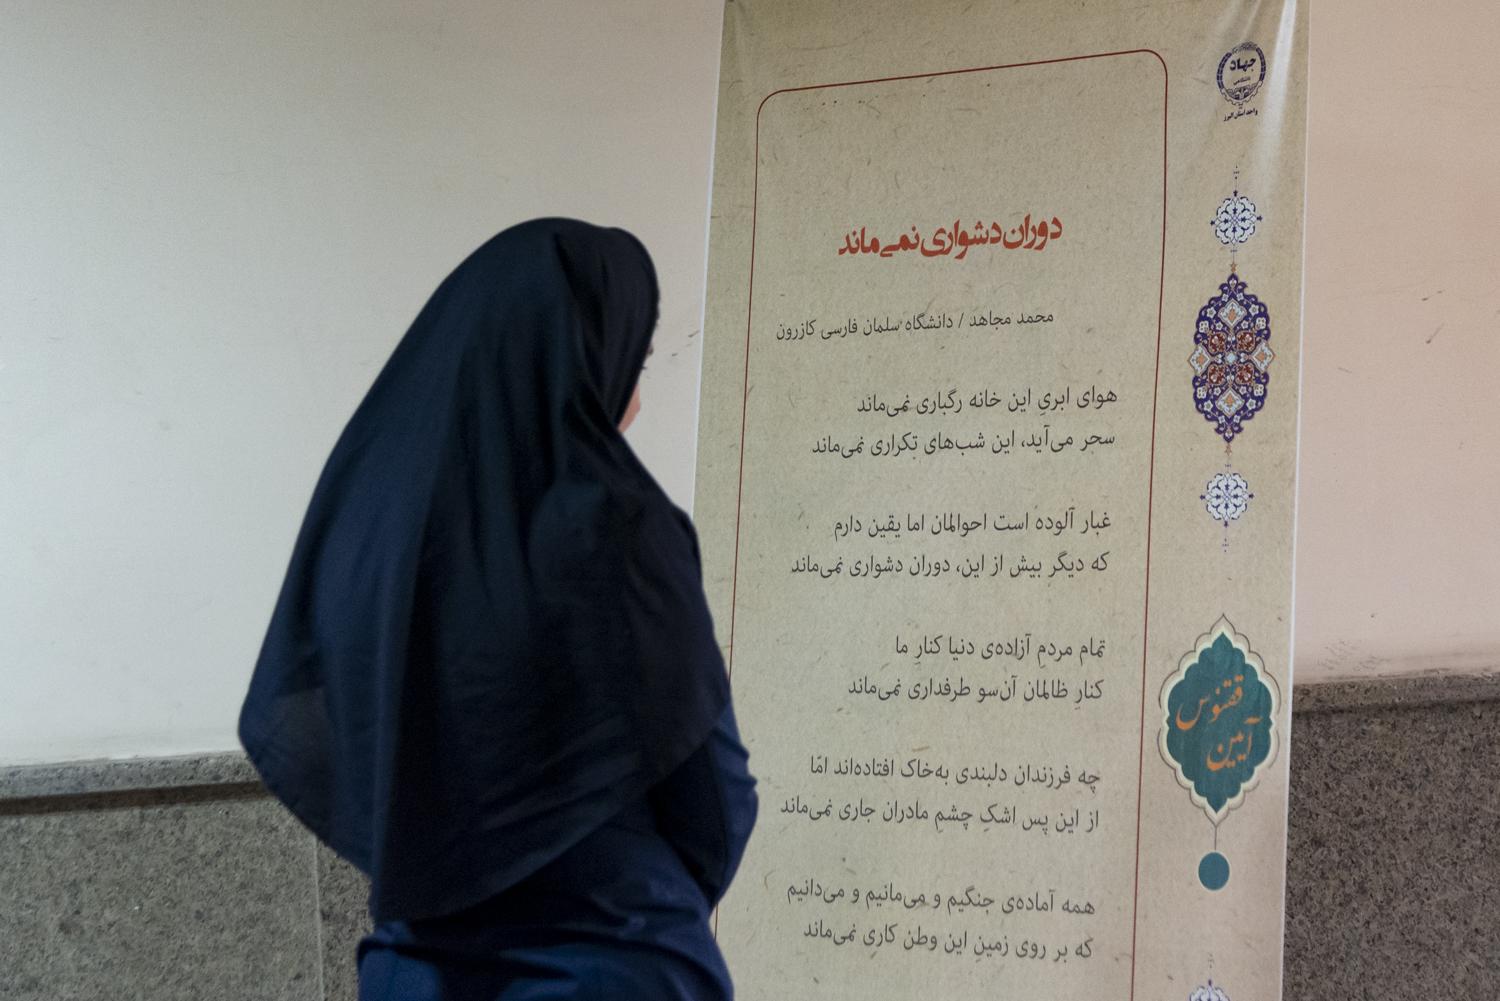 جهاد
دانشگاهی
واحد استان البرز
دوران دشواری نمی‌ماند
محمد مجاهد / دانشگاه سلمان فارسی کازرون
هوای ابریِ این خانه رگباری نمی‌ماند
سحر می‌آید، این شب‌های تکراری نمی‌ماند
غبار آلوده است احوالمان اما یقین دارم
که دیگر بیش از این، دوران دشواری نمی‌ماند
تمام مردمِ آزاده‌ی دنیا کنارِ ما
کنارِ ظالمان آن‌سو طرفداری نمی‌ماند
چه فرزندان دلبندی به‌خاک افتاده‌اند امّا
از این پس اشکِ چشمِ مادران جاری نمی‌ماند
همه آماده‌ی جنگیم و می‌مانیم و می‌دانیم
که بر روی زمینِ این وطن کاری نمی‌ماند
ققنوس
آیین